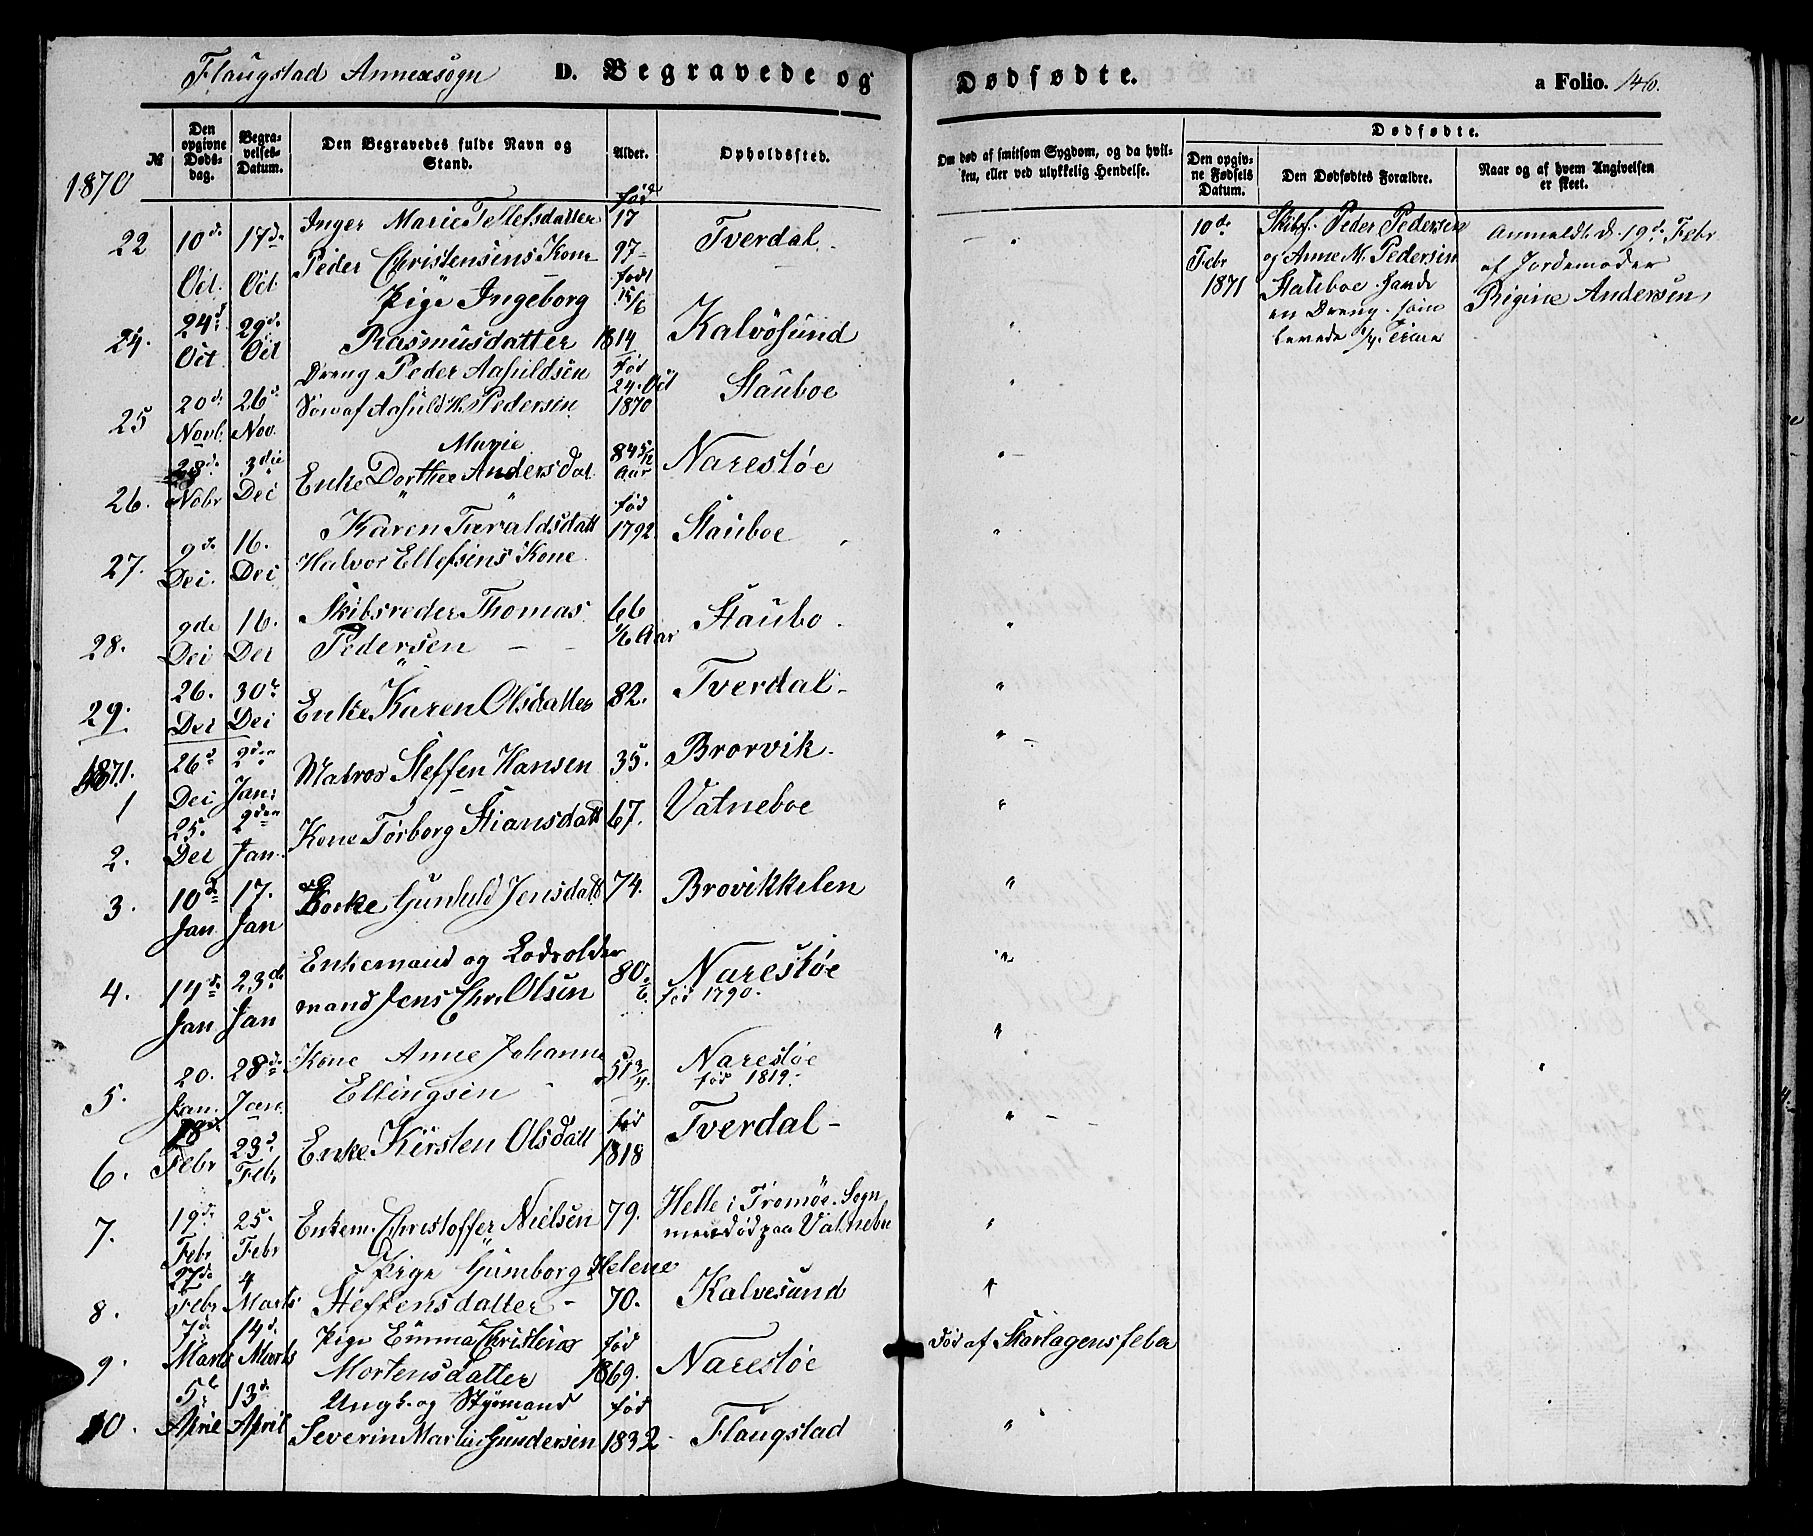 Flaugstad Annexsogn D. Begravede og Dødfødte. a Folio. 146.
№ Den opgivne Dødsdag. Begravelses-Datum. Den Begravedes fulde Navn og Stand. Alder. Opholdssted. Om død af smitsom Sygdom, og da hvilken, eller ved ulykkelig Hendelse. Dødfødte.
Den opgivne Fødsels Datum. Den Dødfødtes Forældre. Naar og af hvem Angivelsen er skeet.
1870
22 10d. Oct. 17de Oct. Inger Marie Tellefsdatter
Peder Christensens Kone
fød 17 97 Tverdal. "
24. 24d. Oct 29d. Oct Pige Ingeborg
Rasmusdatter
født 15/6 1814 Kalvøsund "
25 20d. Novb. 26d. Nov. Dreng Peder Aasuldsen
Søn af Aasuld H. Pedersen
Fød 24. Oct 1870 Stauboe "
26. 28d. Nobr 3die Dec Enke Dorthee Marie Anders Dat.
84 5/12 Aar Narestøe "
27. 9d. Dec. 16. Dec Karen Taraldsdatt
Halvor Ellefsens Kone
fød 1792 Stauboe "
28. 9de Dec 16. Dec Skibsreder Thomas
Pedersen
66 1/6 Aar Staubo. "
29. 26. Dec 30t. Dec Enke Karen Olsdatter 82. Tverdal "
1871.
1 26d. Dec 2den Jan: Matros Steffen Hansen 35. Brorvik. "
2. 25. Dec 2den Jan. Kone Torborg Stiansdatt 67. Vatneboe "
3. 10d. Jan 17. Jan Enke Gunhild Jensdatt 74. Brovikkelen "
4. 14d. Jan 23d. Jan Enkemand og Lodsolder
mand Jens Chr. Olsen
80 Narestøe
fød 1790. "
5. 20. Jan. 28d. Jan. Kone Anne Johanne
Ellingsen
51 3/4. Narestøe
fød 1819. "
6. 18d. Febr 23d. Febr Enke Kirsten Olsdatt
fød 1818 Tverdal "
7. 19d. Febr 25. Febr Enkem. Christoffer Nielsen 79. Helle i Tromøe Sogn
men død paa Vatnebu "
8. 27d. Febr 4 Marts Pige Gunborg Helene
Steffensdatter 70. Kalvesund "
9. 7d. Marts 14d. Marts Pige Emma Christine
Mortensdatter
fød 1869. Narestøe død af Skarlagensfeber
10. 5t April 13d. April Ungk. og Styrmand
Severin Martin Gundersen
fød 1832 Flaugstad "
10de Febr 1871 Skibsf. Peder Pedersen
og Anne M. Pedersen
Stauboe havde
en Dreng som
levede 1/4 Time
Anmeldt d. 19d. Febr
af Jordemoder
Rigine Andersen